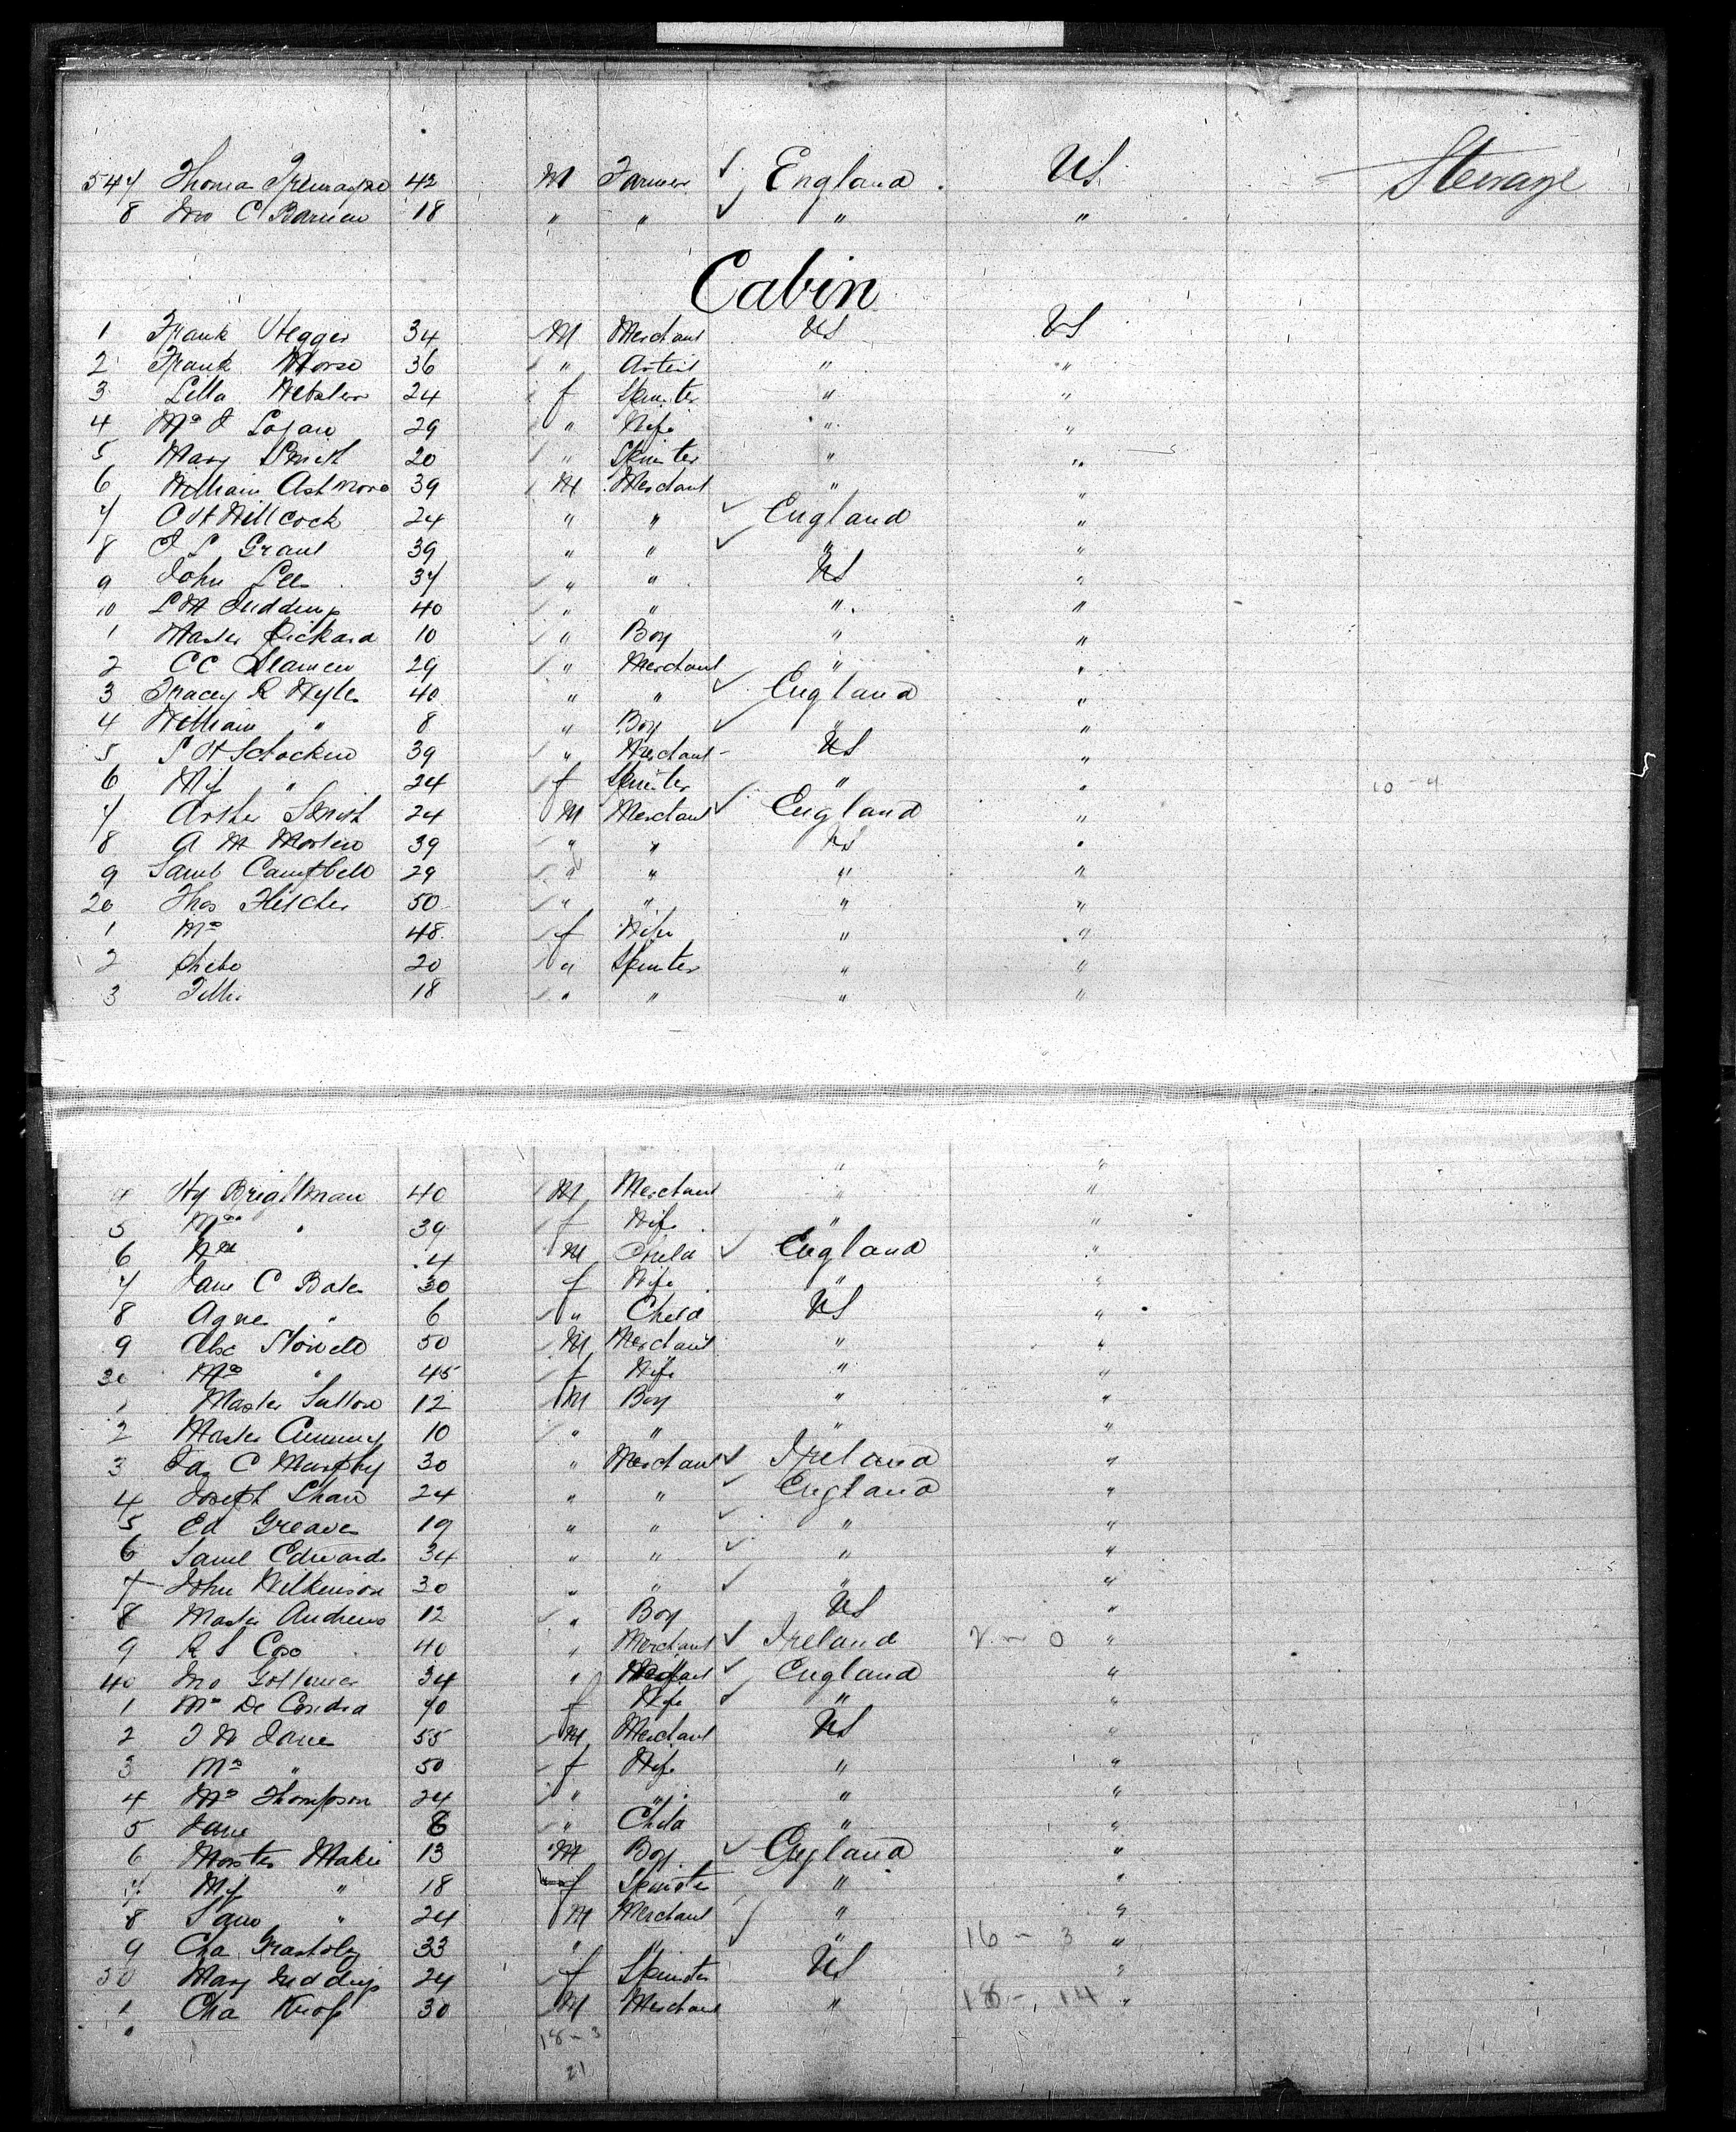 547 Thomas 42 M Farmer ✓ England US Steerage
8 Jno C 18 " " ✓ " "
Cabin
1 Frank Hegger 34 M Merchant US US
2 Frank Morse 36 " Artist " "
3 Lilla Webster 24 f Spinster " "
4 Mrs Logan 29 " Wife " "
5 Mary Smith 20 " Spinster " "
6 William Ashmore 39 M Merchant " "
7 C H Willcock 24 " " ✓ England "
8 J S Grant 39 " " ✓ " "
9 John Lee 37 " " US "
10 L W Giddings 40 " " " "
1 Master Pickard 10 " Boy " "
2 CC 29 " Merchant " "
3 Tracey R Wyle 40 " " ✓ England "
4 William " 8 " Boy ✓ " "
5 S H 39 " Merchant US "
6 Mifs " 24 f Spinster " " 10 - 4
7 Arther Smith 24 M Merchant ✓ England "
8 A M 39 " " US "
9 Saml Campbell 29 " " " "
20 Thos Fletcher 50 " " " "
1 Mrs 48 f Wife " "
2 Phebe 20 " Spinster " "
3 Tillie 18 " " " "
" "
4 Hy Brightman 40 M Merchant " "
5 Mrs " 39 f Wife " "
6 4 M Child ✓ England "
7 Jane C Bates 30 f Wife " "
8 Agnes " 6 " Child US "
9 50 M Merchant " "
30 Mrs " 45 f Wife " "
1 Master Sutton 12 M Boy " "
2 Master 10 " " " "
3 Jas C Murphy 30 " Merchant ✓ Ireland "
4 Joseph Shaw 24 " " ✓ England "
5 Ed Greaves 19 " " ✓ " "
6 Saml Edwards 34 " " ✓ " "
7 John Wilkinson 30 " " ✓ " "
8 Master Andrews 12 " Boy US "
9 R S 40 " Merchant ✓ Ireland 2 - 0 "
40 Jno 34 " ✓ England "
1 Mrs De 40 f Wife ✓ " "
2 J W Jane 55 M Merchant US "
3 Mrs " 50 f Wife " "
4 Mrs Thompson 24 " " " "
5 Jane 6 " Child " "
6 Master Makin 13 M Boy ✓ England "
7 Mifs " 18 f Spinster " "
8 " 24 M Merchant ✓ " "
9 Cha 33 " " ✓ " 16 - 3 "
50 Mary Giddings 24 f Spinster US "
1 Cha 30 M Merchant " 18 - 14 "
18 - 3
21